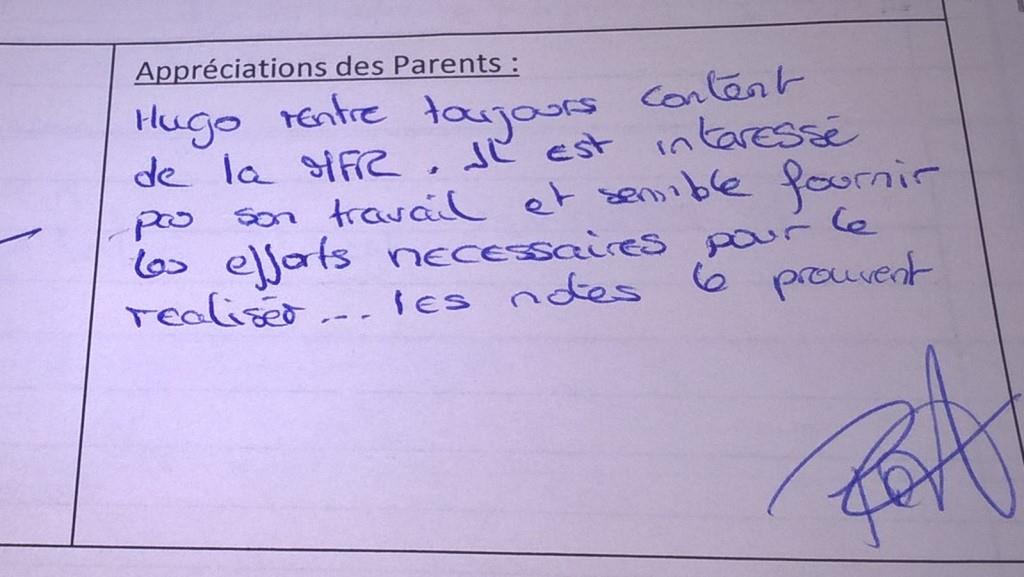 Appréciations des Parents :
Hugo rentre toujours content
de la MFR. Il est interessé
par son travail et semble fournir
les efforts necessaires pour le
realiser... les notes le prouvent